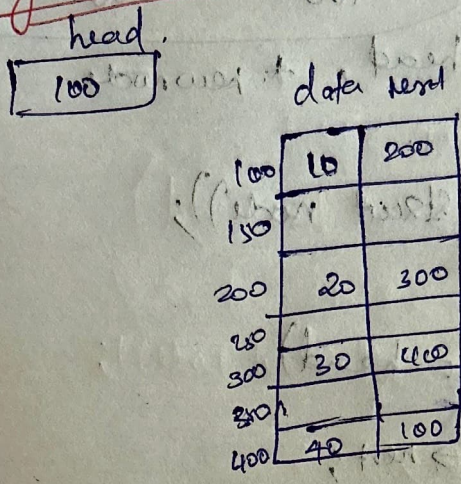 head.
100
data next
100 10 200
150
200 20 300
250
300 30 400
350
400 40 100